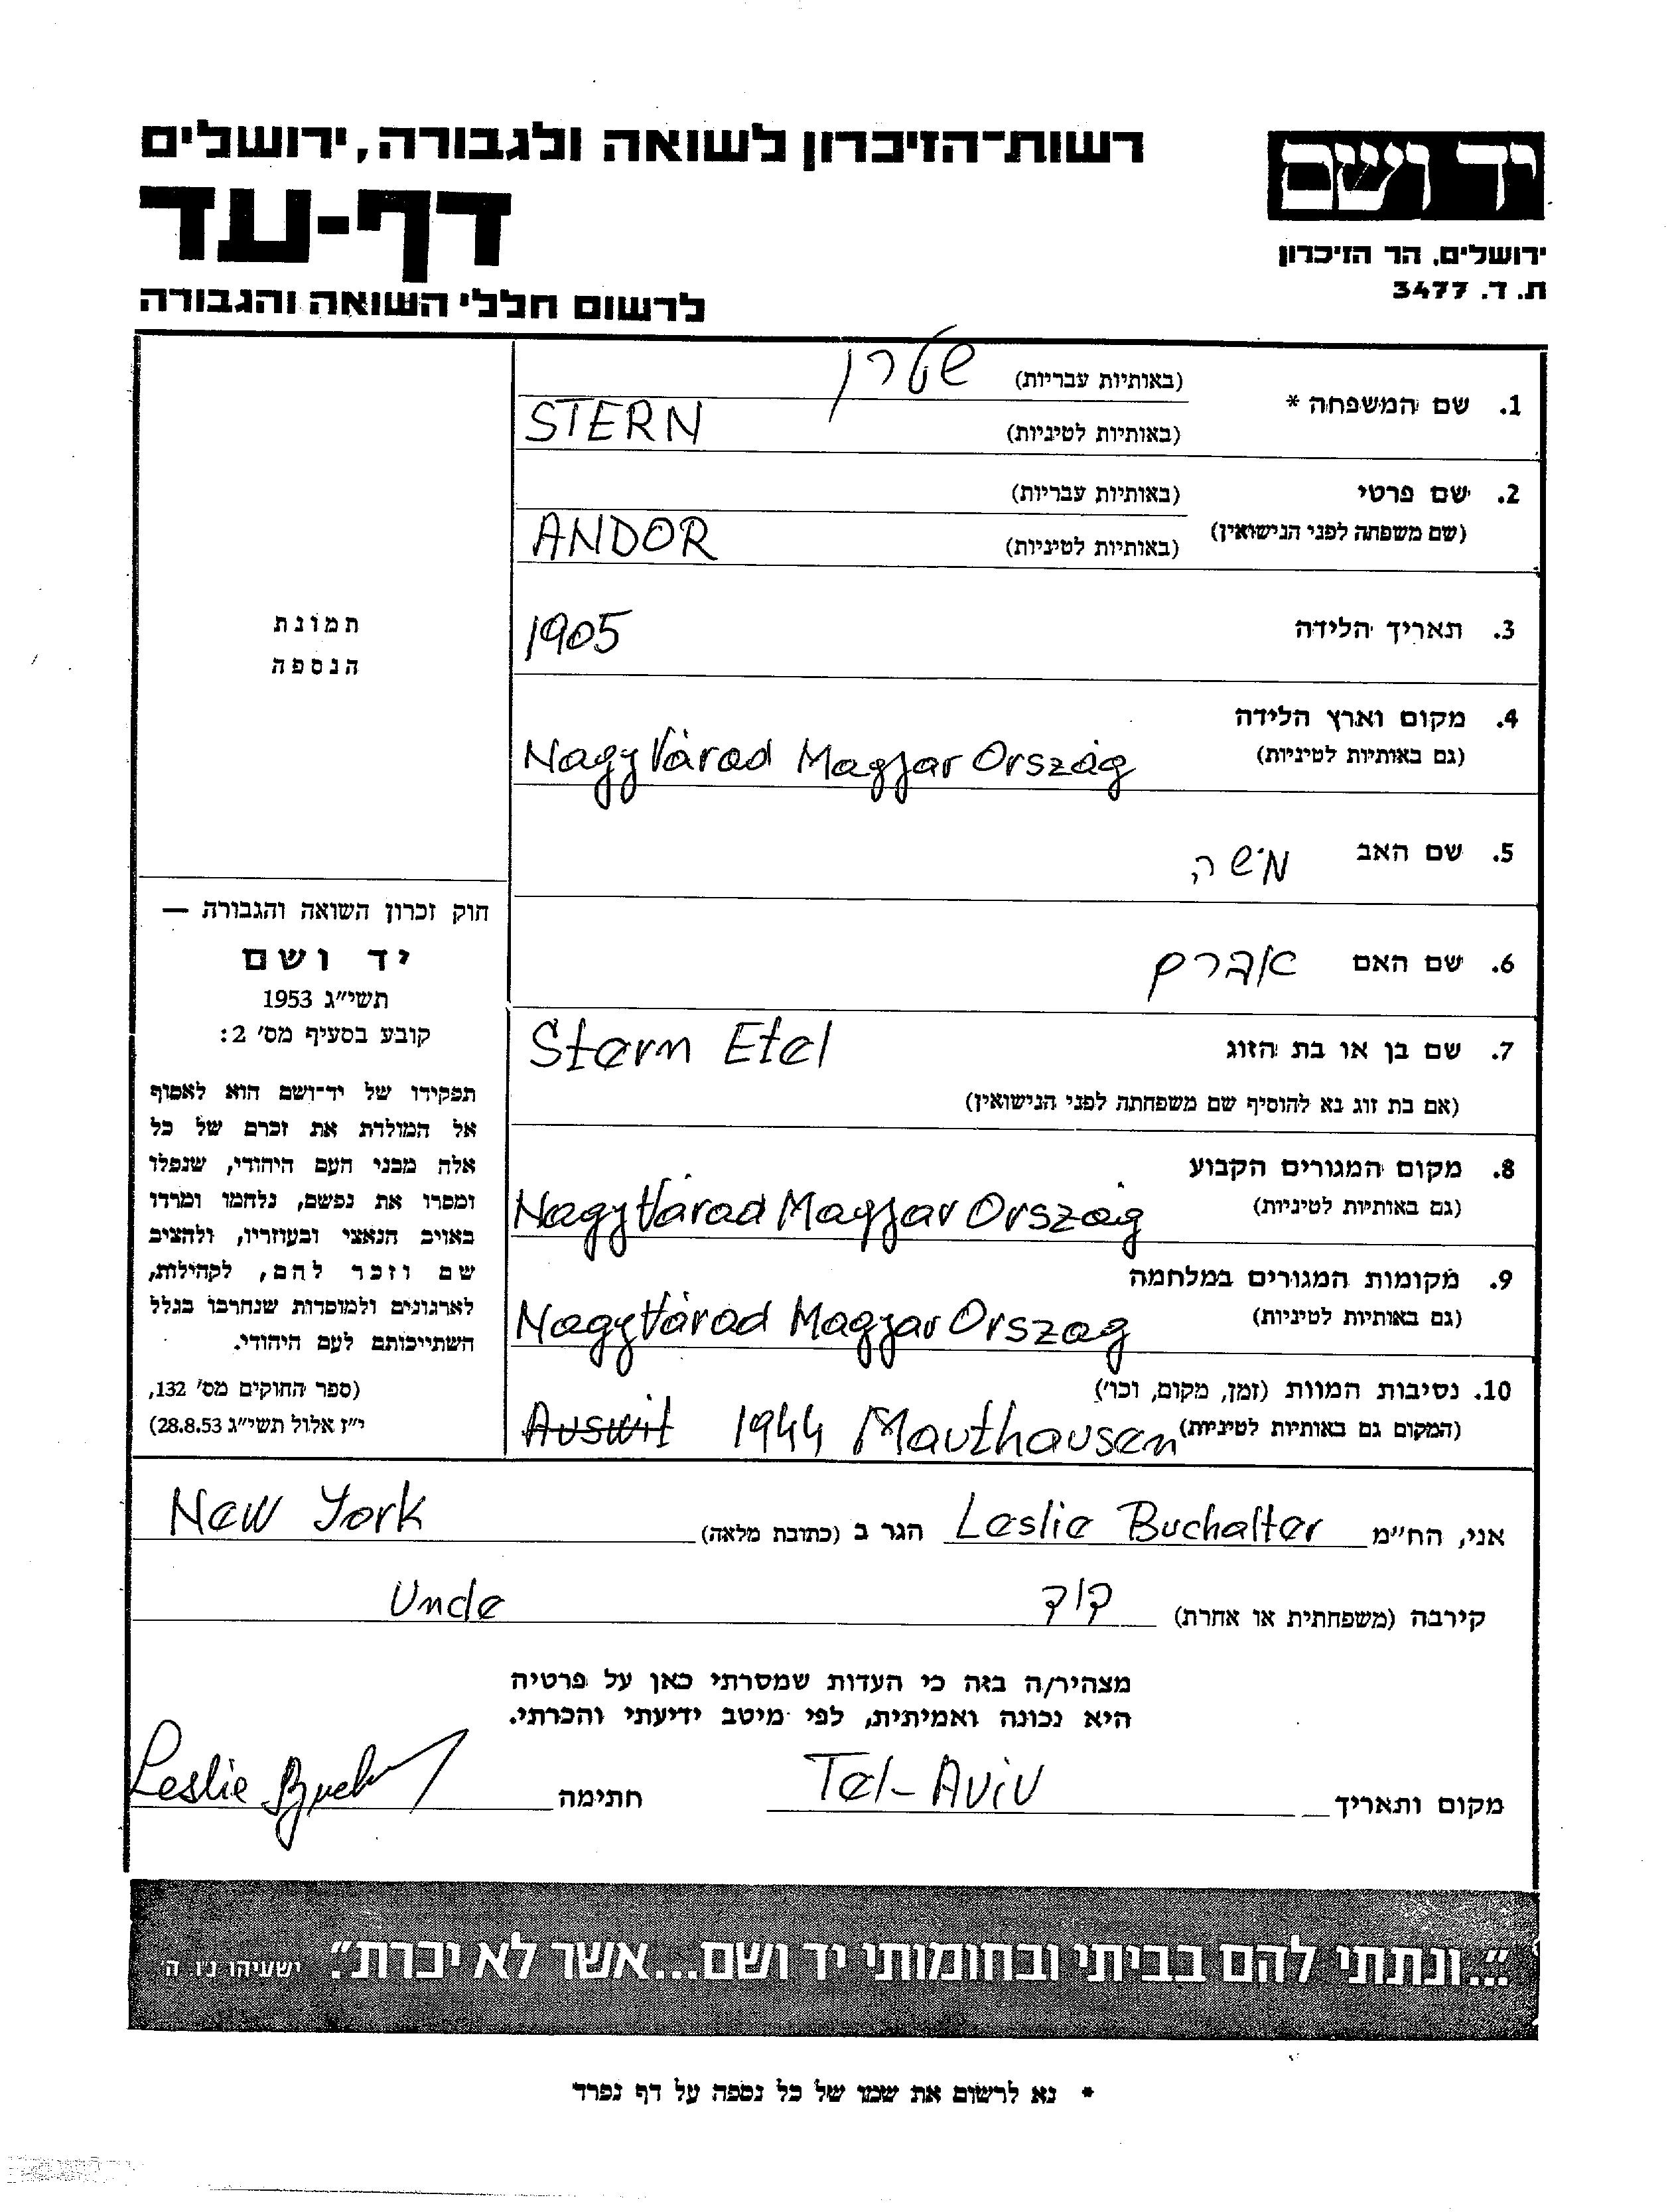 רשות-הזיכרון לשואה ולגבורה, ירושלים
יד ושם
דף-עד
ירושלים, הר הזיכרון
ת. ד. 3477
לרשום חללי השואה והגבורה
1. שם המשפחה * (באותיות עבריות) שטרן
(באותיות לטיניות) STERN
2. שם פרטי (באותיות עבריות)
(שם משפחה לפני הנישואין) (באותיות לטיניות) ANDOR
3. תאריך הלידה 1905
4. מקום וארץ הלידה
(גם באותיות לטיניות) Nagy Várad Magyar Ország
5. שם האב משה
6. שם האם אברם
7. שם בן או בת הזוג Stern Etel
(אם בת זוג נא להוסיף שם משפחתה לפני הנישואין)
8. מקום המגורים הקבוע
(גם באותיות לטיניות) Nagy Várad Magyar Ország
9. מקומות המגורים במלחמה
(גם באותיות לטיניות) Nagy Várad Magyar Orszag
10. נסיבות המוות (זמן, מקום, וכו')
(המקום גם באותיות לטיניות) Auswit 1944 Mauthausen
תמונת
הנספה
חוק זכרון השואה והגבורה —
יד ושם
תשי"ג 1953
קובע בסעיף מס' 2:
תפקידו של יד-ושם הוא לאסוף
אל המולדת את זכרם של כל
אלה מבני העם היהודי, שנפלו
ומסרו את נפשם, נלחמו ומרדו
באויב הנאצי ובעוזריו, ולהציב
שם וזכר להם, לקהילות,
לארגונים ולמוסדות שנחרבו בגלל
השתייכותם לעם היהודי.
(ספר החוקים מס' 132,
י"ז אלול תשי"ג 28.8.53)
אני, הח"מ Leslie Buchalter הגר ב (כתובת מלאה) New York
קירבה (משפחתית או אחרת) דוד Uncle
מצהיר/ה בזה כי העדות שמסרתי כאן על פרטיה
היא נכונה ואמיתית, לפי מיטב ידיעתי והכרתי.
מקום ותאריך Tel-Aviv חתימה Leslie
"...ונתתי להם בביתי ובחומותי יד ושם...אשר לא יכרת". ישעיהו נ"ו, ה'
* נא לרשום את שמו של כל נספה על דף נפרד